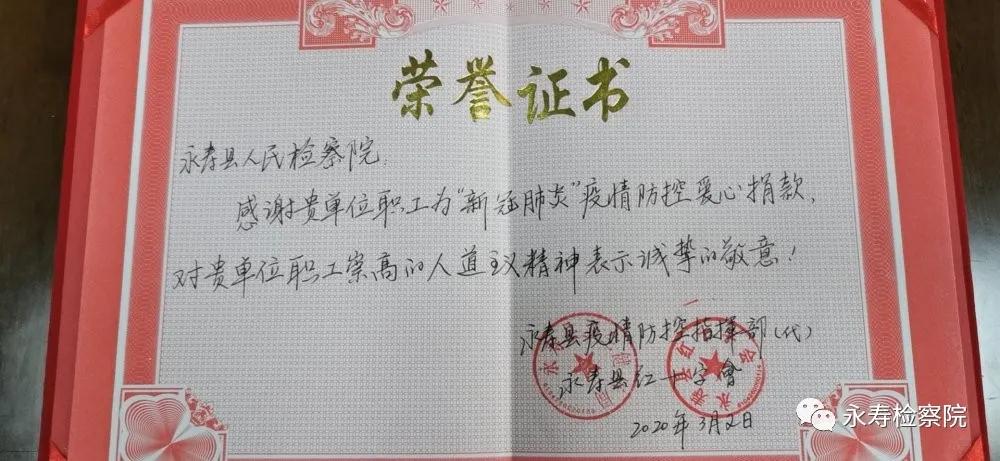 荣誉证书
永寿县人民检察院:
感谢贵单位职工为"新冠肺炎"疫情防控爱心捐款,
对贵单位职工崇高的人道主义精神表示诚挚的敬意!
永寿县疫情防控指挥部(代)
永寿县红十字會
2020年3月2日
永寿检察院